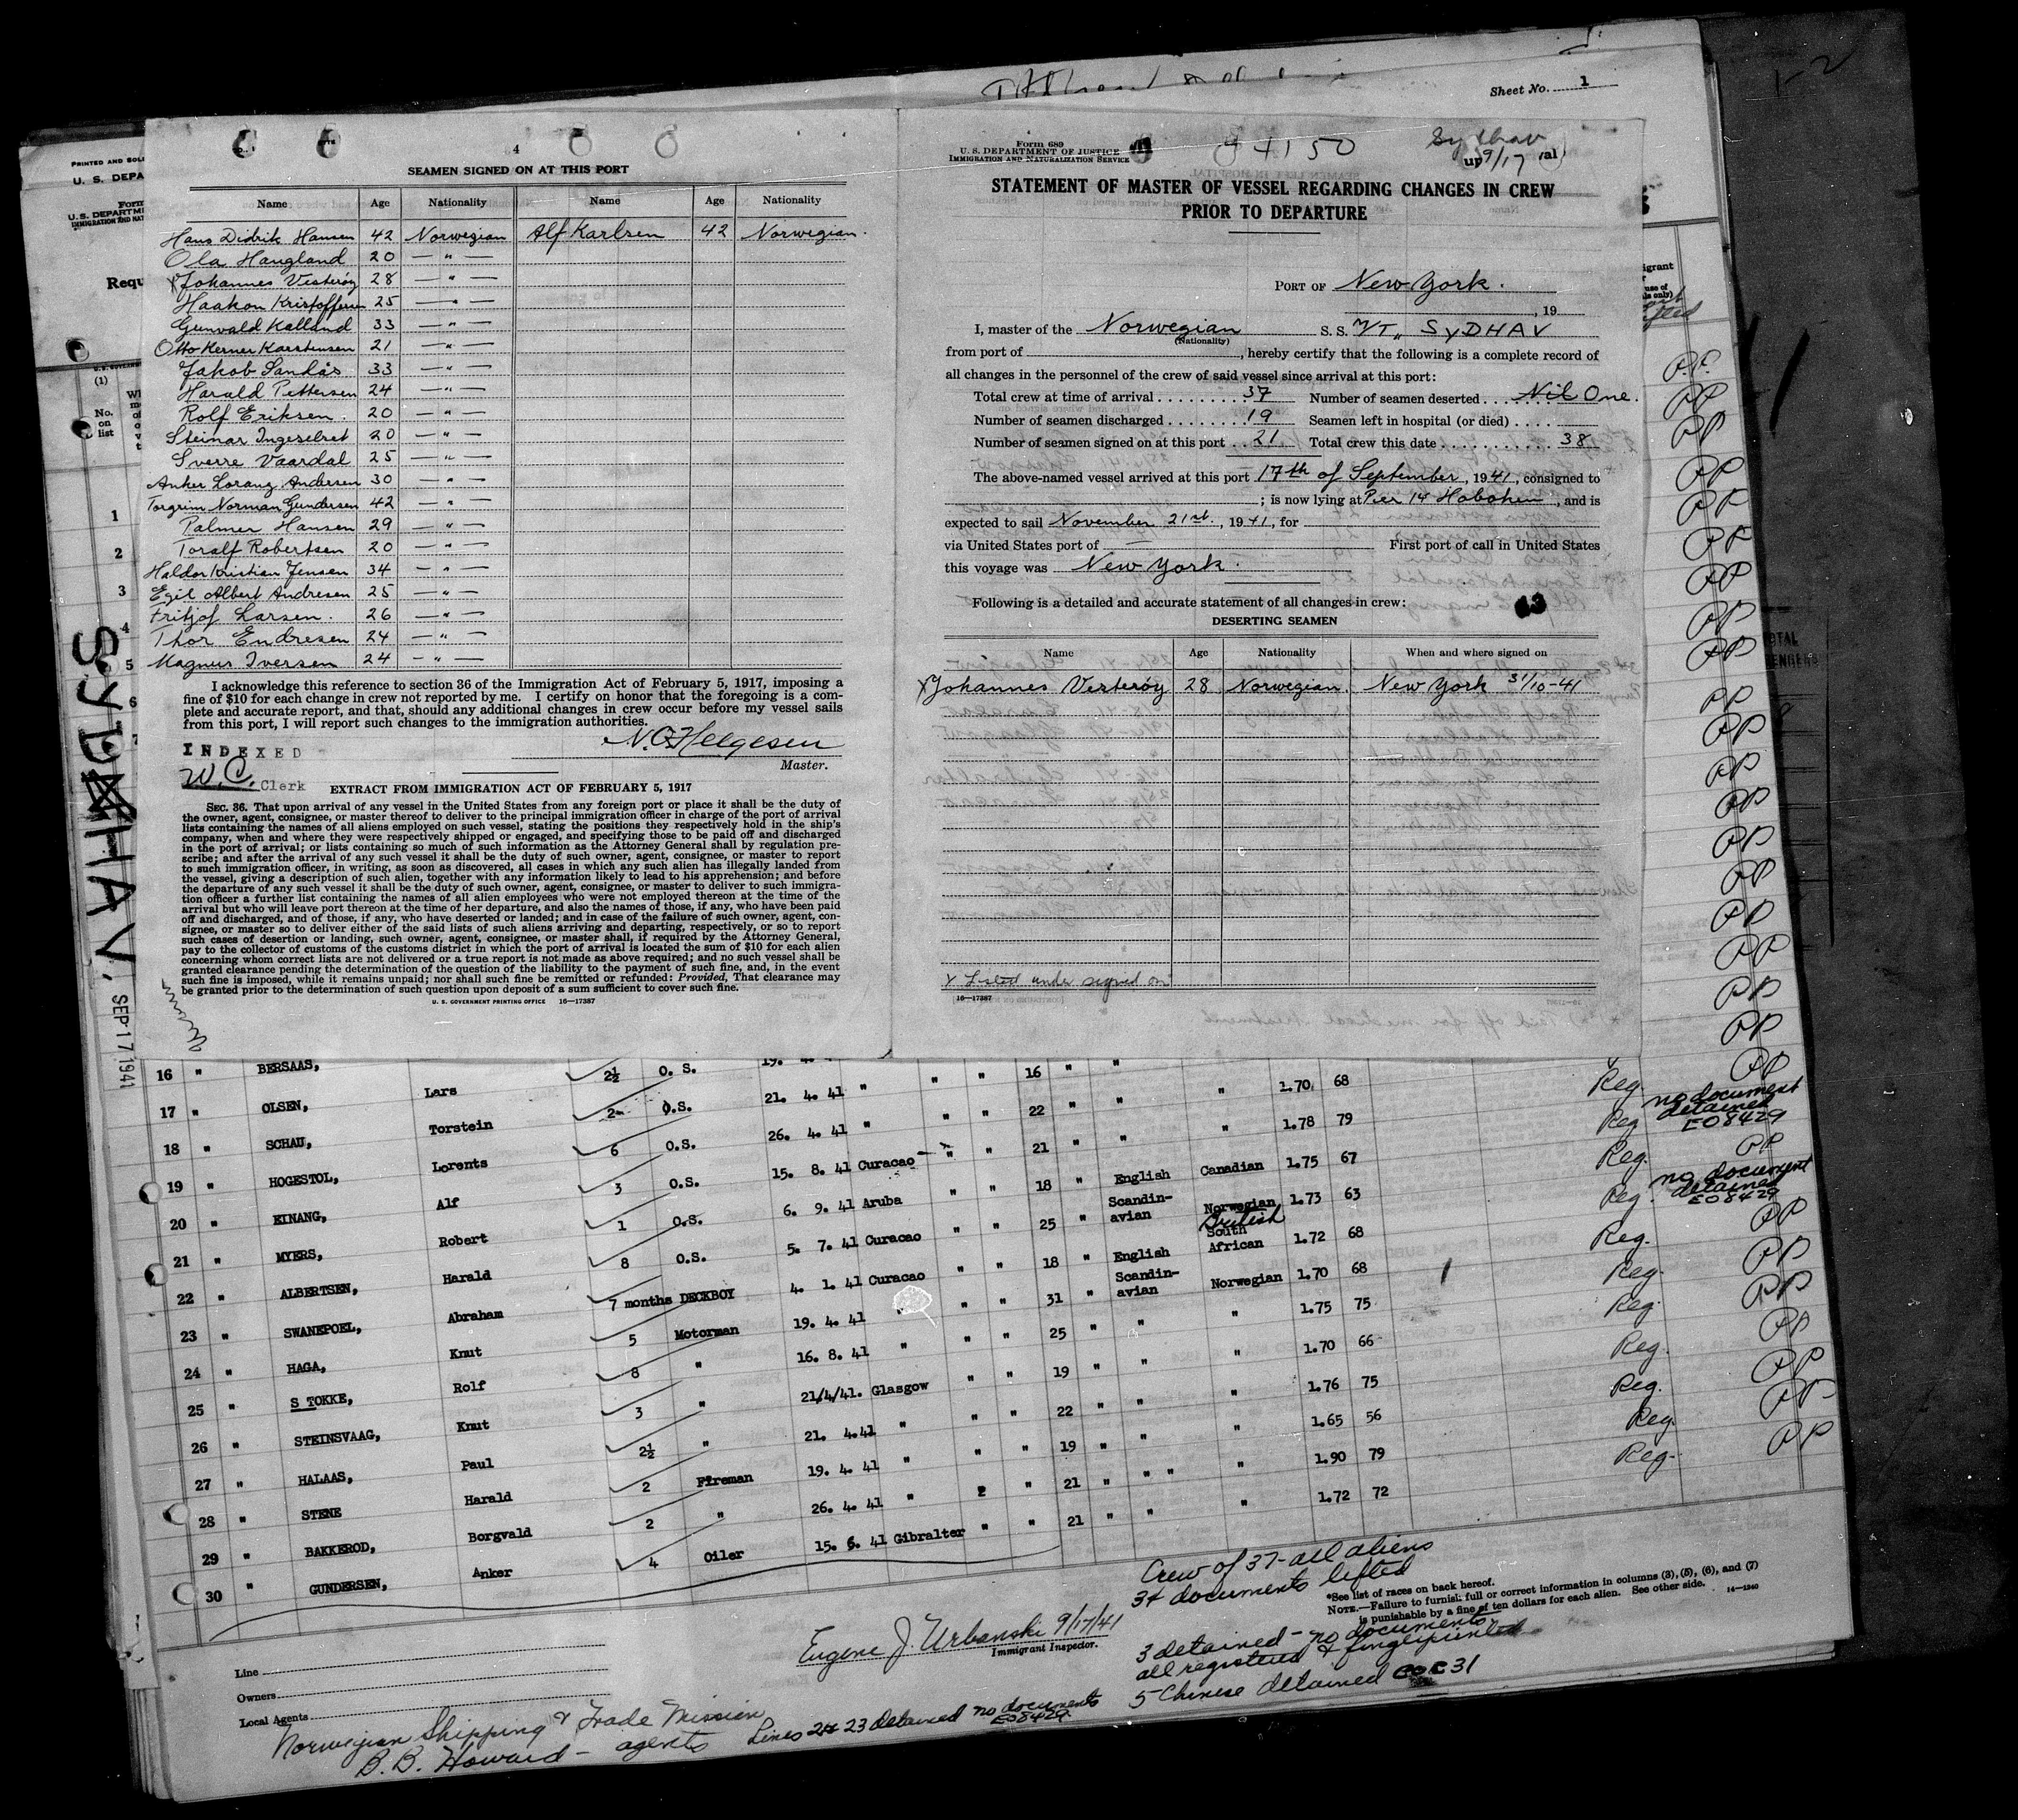 Sheet No. 1
4
SEAMEN SIGNED ON AT THIS PORT
Name Age Nationality Name Age Nationality
Hans Didrik Hansen 42 Norwegian Alf Karlsen 42 Norwegian.
Ola Haugland 20 — " —
x Johannes Vesterøy 28 — " —
Haakon Kristoffersen 25 — " —
Gunvald Kalland 33 — " —
Otto Kerner Karstensen 21 — " —
Jakob Sandås 33 — " —
Harald Pettersen 24 — " —
Rolf Eriksen. 20 — " —
Steinar Ingeselret 20 — " —
Sverre Vaardal 25 — " —
Anker Lorang Andersen 30 — " —
Torgrim Norman Gundersen 42 — " —
Palmer Hansen 29 — " —
Toralf Robertsen 20 — " —
Haldor Kristian Jensen 34 — " —
Egil Albert Andresen 25 — " —
Fritjof Larsen. 26 — " —
Thor Endresen 24 — " —
Magnus Iversen 24 — " —
I acknowledge this reference to section 36 of the Immigration Act of February 5, 1917, imposing a
fine of $10 for each change in crew not reported by me. I certify on honor that the foregoing is a com-
plete and accurate report, and that, should any additional changes in crew occur before my vessel sails
from this port, I will report such changes to the immigration authorities.
N. O. Helgesen
Master.
INDEXED
W.C. Clerk
EXTRACT FROM IMMIGRATION ACT OF FEBRUARY 5, 1917
SEC. 36. That upon arrival of any vessel in the United States from any foreign port or place it shall be the duty of
the owner, agent, consignee, or master thereof to deliver to the principal immigration officer in charge of the port of arrival
lists containing the names of all aliens employed on such vessel, stating the positions they respectively hold in the ship's
company, when and where they were respectively shipped or engaged, and specifying those to be paid off and discharged
in the port of arrival; or lists containing so much of such information as the Attorney General shall by regulation pre-
scribe; and after the arrival of any such vessel it shall be the duty of such owner, agent, consignee, or master to report
to such immigration officer, in writing, as soon as discovered, all cases in which any such alien has illegally landed from
the vessel, giving a description of such alien, together with any information likely to lead to his apprehension; and before
the departure of any such vessel it shall be the duty of such owner, agent, consignee, or master to deliver to such immigra-
tion officer a further list containing the names of all alien employees who were not employed thereon at the time of the
arrival but who will leave port thereon at the time of her departure, and also the names of those, if any, who have been paid
off and discharged, and of those, if any, who have deserted or landed; and in case of the failure of such owner, agent, con-
signee, or master so to deliver either of the said lists of such aliens arriving and departing, respectively, or so to report
such cases of desertion or landing, such owner, agent, consignee, or master shall, if required by the Attorney General,
pay to the collector of customs of the customs district in which the port of arrival is located the sum of $10 for each alien
concerning whom correct lists are not delivered or a true report is not made as above required; and no such vessel shall be
granted clearance pending the determination of the question of the liability to the payment of such fine, and, in the event
such fine is imposed, while it remains unpaid; nor shall such fine be remitted or refunded: Provided, That clearance may
be granted prior to the determination of such question upon deposit of a sum sufficient to cover such fine.
U. S. GOVERNMENT PRINTING OFFICE 16—17387
Form 689
U. S. DEPARTMENT OF JUSTICE
IMMIGRATION AND NATURALIZATION SERVICE
94150
Sydhav
9/17
STATEMENT OF MASTER OF VESSEL REGARDING CHANGES IN CREW
PRIOR TO DEPARTURE
PORT OF New York.
, 19
I, master of the Norwegian S. S. M/T „ SYDHAV
(Nationality)
from port of , hereby certify that the following is a complete record of
all changes in the personnel of the crew of said vessel since arrival at this port:
Total crew at time of arrival 37 Number of seamen deserted Nil One.
Number of seamen discharged 19 Seamen left in hospital (or died)
Number of seamen signed on at this port 21 Total crew this date 38
The above-named vessel arrived at this port 17th of September, 1941, consigned to
; is now lying at Pier 14 Hoboken, and is
expected to sail November 21st., 1941, for
via United States port of — First port of call in United States
this voyage was New York.
Following is a detailed and accurate statement of all changes in crew:
DESERTING SEAMEN
Name Age Nationality When and where signed on
x Johannes Vesterøy 28 Norwegian. New York 31/10-41
x Listed under signed on
16—17387
SYDHAV.
SEP 17 1941
16 " BERSAAS, Lars 2½ O. S. 19. 4. " " 16 " " " 1.70 68 Reg. PP
17 " OLSEN, Torstein 2 O.S. 21. 4. 41 " " " 22 " " " 1.78 79 Reg no document detained EO8429
18 " SCHAU, Lorents 6 O.S. 26. 4. 41 " " " 21 " English Canadian 1.75 67 Reg. PP
19 " HOGESTOL, Alf 3 O.S. 15. 8. 41 Curacao " " 18 " Scandin-avian Norwegian 1.73 63 Reg. no document detained EO8429
20 " EINANG, Robert 1 O.S. 6. 9. 41 Aruba " " 25 " English British South African 1.72 68 Reg. PP
21 " MYERS, Harald 8 O.S. 5. 7. 41 Curacao " " 18 " Scandin-avian Norwegian 1.70 68 Reg. PP
22 " ALBERTSEN, Abraham 7 months DECKBOY 4. 1. 41 Curacao " " 31 " " " 1.75 75 Reg. PP
23 " SWANEPOEL, Knut 5 Motorman 19. 4. 41 " " " 25 " " " 1.70 66 Reg. PP
24 " HAGA, Rolf 8 " 16. 8. 41 " " " 19 " " " 1.76 75 Reg. PP
25 " S TOKKE, Knut 3 " 21/4/41. Glasgow " " 22 " " " 1.65 56 Reg. PP
26 " STEINSVAAG, Paul 2½ " 21. 4.41 " " " 19 " " " 1.90 79 Reg. PP
27 " HALAAS, Harald 2 Fireman 19. 4. 41 " " " 21 " " " 1.72 72
28 " STENE Borgvald 2 " 26. 4. 41 " " " 21 " "
29 " BAKKEROD, Anker 4 Oiler 15. 6. 41 Gibralter " "
30 " GUNDERSEN,
Crew of 37 - all aliens
34 documents lifted
*See list of races on back hereof.
NOTE.—Failure to furnish full or correct information in columns (3), (5), (6), and (7)
is punishable by a fine of ten dollars for each alien. See other side. 14—1240
Eugene J. Urbanski 9/17/41
Immigrant Inspector.
3 detained - no documents
all registered & fingerprinted
5 Chinese detained COC 31
Line
Owners
Local Agents
Norwegian Shipping & Trade Mission
B. B. Howard - agents
Lines 23 detained no documents EO8429